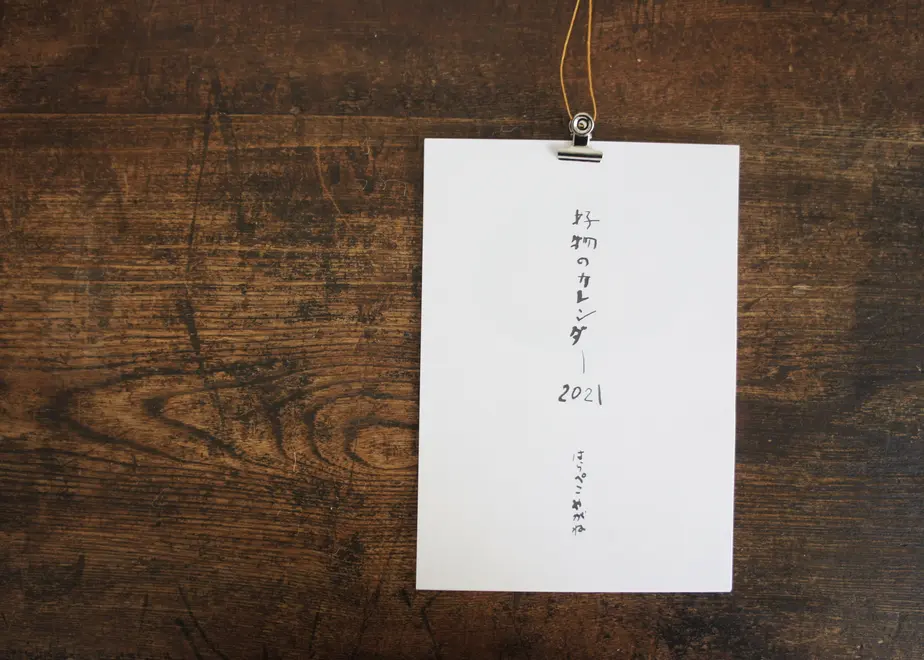 好物のカレンダー
2021
はらぺこめがね